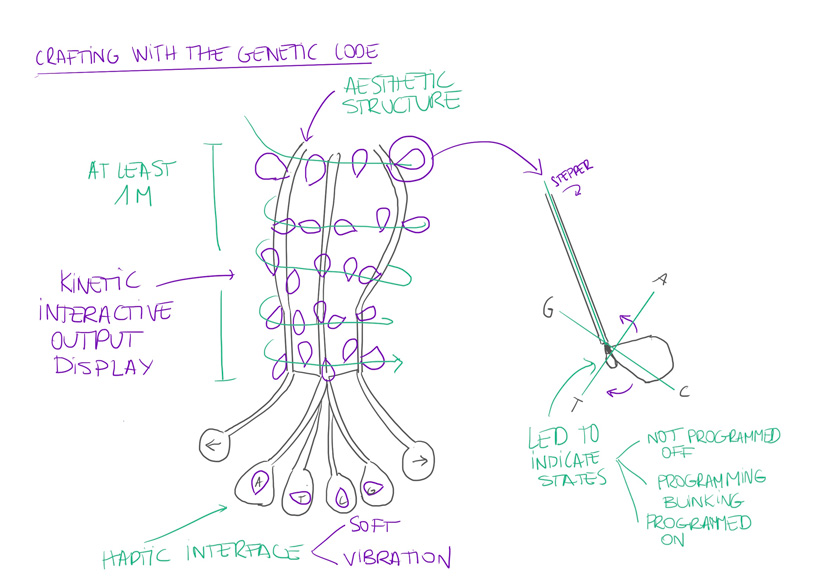 CRAFTING WITH THE GENETIC CODE
AESTHETIC
STRUCTURE
AT LEAST
1 M
STEPPER
KINETIC
INTERACTIVE
OUTPUT
DISPLAY
A
G
T
C
LED TO
INDICATE
STATES
NOT PROGRAMMED
OFF
PROGRAMMING
BLINKING
PROGRAMMED
ON
A
T
C
G
HAPTIC INTERFACE
SOFT
VIBRATION